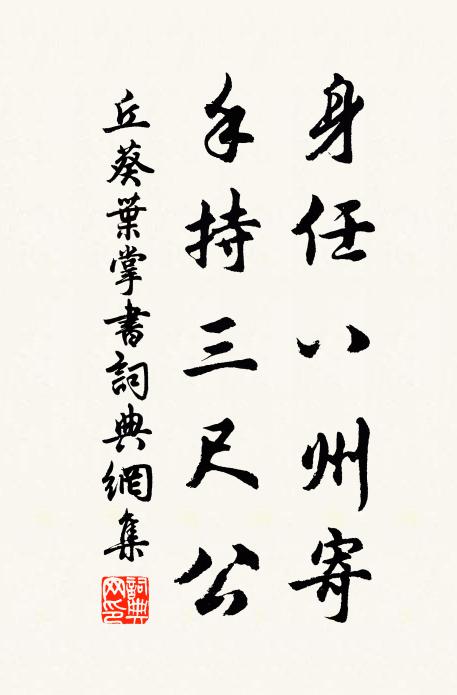 身任八州寄
手持三尺公
丘葵葉掌書詞典網集
詞典網印